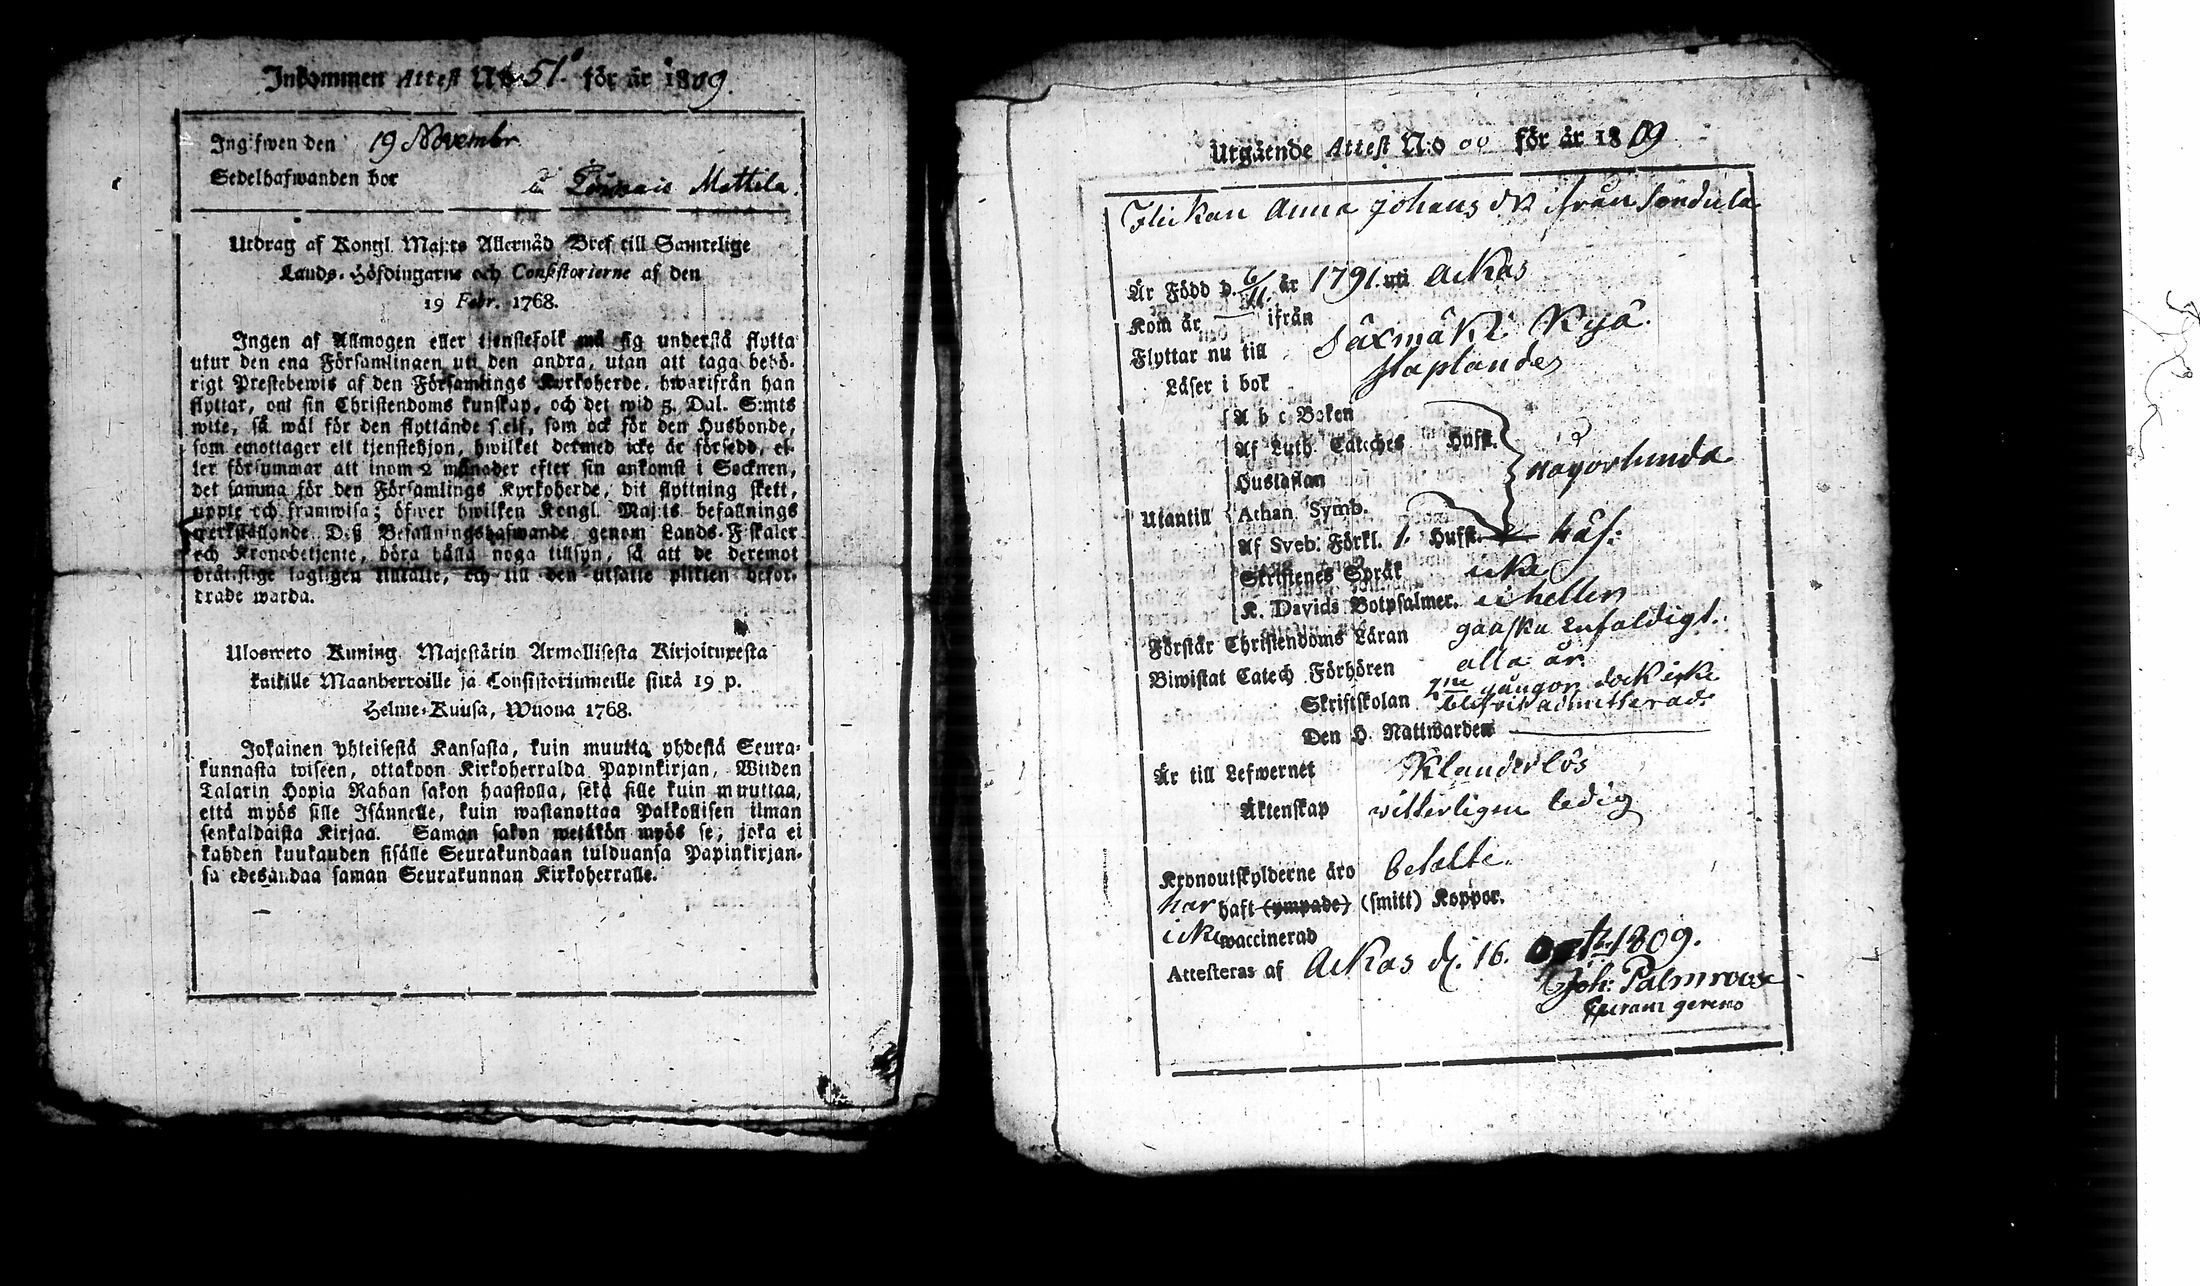 Inkommen Attest N:o 51. för år 1809.
Ingifwen den 19 Novembr
Sedelhafwanden bor Mattila.
Utdrag af Kongl. Maj:ts Allernåd Bref till Samtelige
Lands-Höfdingarne och Consistorierne af den
19 Febr. 1768.
Ingen af Allmogen eller tjenstefolk må sig understå flytta
utur den ena Församlingen uti den andra, utan att taga behö-
rigt Prestebewis af den Församlings Kyrkoherde, hwarifrån han
flyttar, om sin Christendoms kunskap, och det wid 5. Dal. S:mts
wite, så wäl för den flyttande sjelf, som ock för den Husbonde,
som emottager ett tjenstehjon, hwilket dermed icke är försedd, el-
ler försummar att inom 2 månader efter sin ankomst i Socknen,
det samma för den Församlings Kyrkoherde, dit flyttning skett,
uppte och framwisa; öfwer hwilken Kongl. Maj:ts befallnings
werkställande Deß Befallningshafwande genom Lands-Fiskaler
och Kronobetjente, böra hålla noga tillsyn, så att de deremot
brätslige lagligen tilltalte, och till den utsatte plikten befor-
drade warda.
Ulosweto Kuning. Majestätin Armollisesta Kirjoituxesta
kaikille Maanherroille ja Consistoriumeille siitä 19 p.
Helme-Kuusa, Wuona 1768.
Jokainen yhteisestä Kansasta, kuin muutta yhdestä Seura-
kunnasta toiseen, ottakoon Kirkoherralda Papinkirjan, Wiiden
Talarin Hopia Rahan sakon haastolla, sekä sille kuin muuttaa,
että myös sille Isännelle, kuin wastanottaa Palkollisen ilman
senkaldaista Kirjaa. Saman sakon wetäkön myös se, joka ei
kahden kuukauden sisälle Seurakundaan tulduansa Papinkirjan-
sa edesandaa saman Seurakunnan Kirkoherralle.
Utgående Attest N:o 00 för år 1809
Flickan Anna Johans dr ifrån Sondula
Är Född d. 6/11. år 1791. uti Ackas
Kom år ifrån
Flyttar nu till Säxmäki Kyå.
Läser i bok Staplandes
A b c Boken
Af Luth. Cateches Hufst.
Hustaflan någorlunda
Utantill Athan. Symb.
Af Sveb. Förkl. 1. Hufst. häf:
Skriftenes Språk icke
K. Davids Botpsalmer. ei heller
Förstår Christendoms Läran ganska enfaldigt.
Biwistat Catech. Förhören alla år
Skriftskolan 2ne gångor dock icke
blifvit admitterad.
Den H. Nattwarden
Är till Lefwernet Klanderlös
Äktenskap witterligen ledig
Kronoutskylderne äro betalte.
har haft (ympade) (smitt) Koppor.
icke vaccinerad
Attesteras af Ackas d. 16. 1809.
Joh: Palmroos
Curam gerens